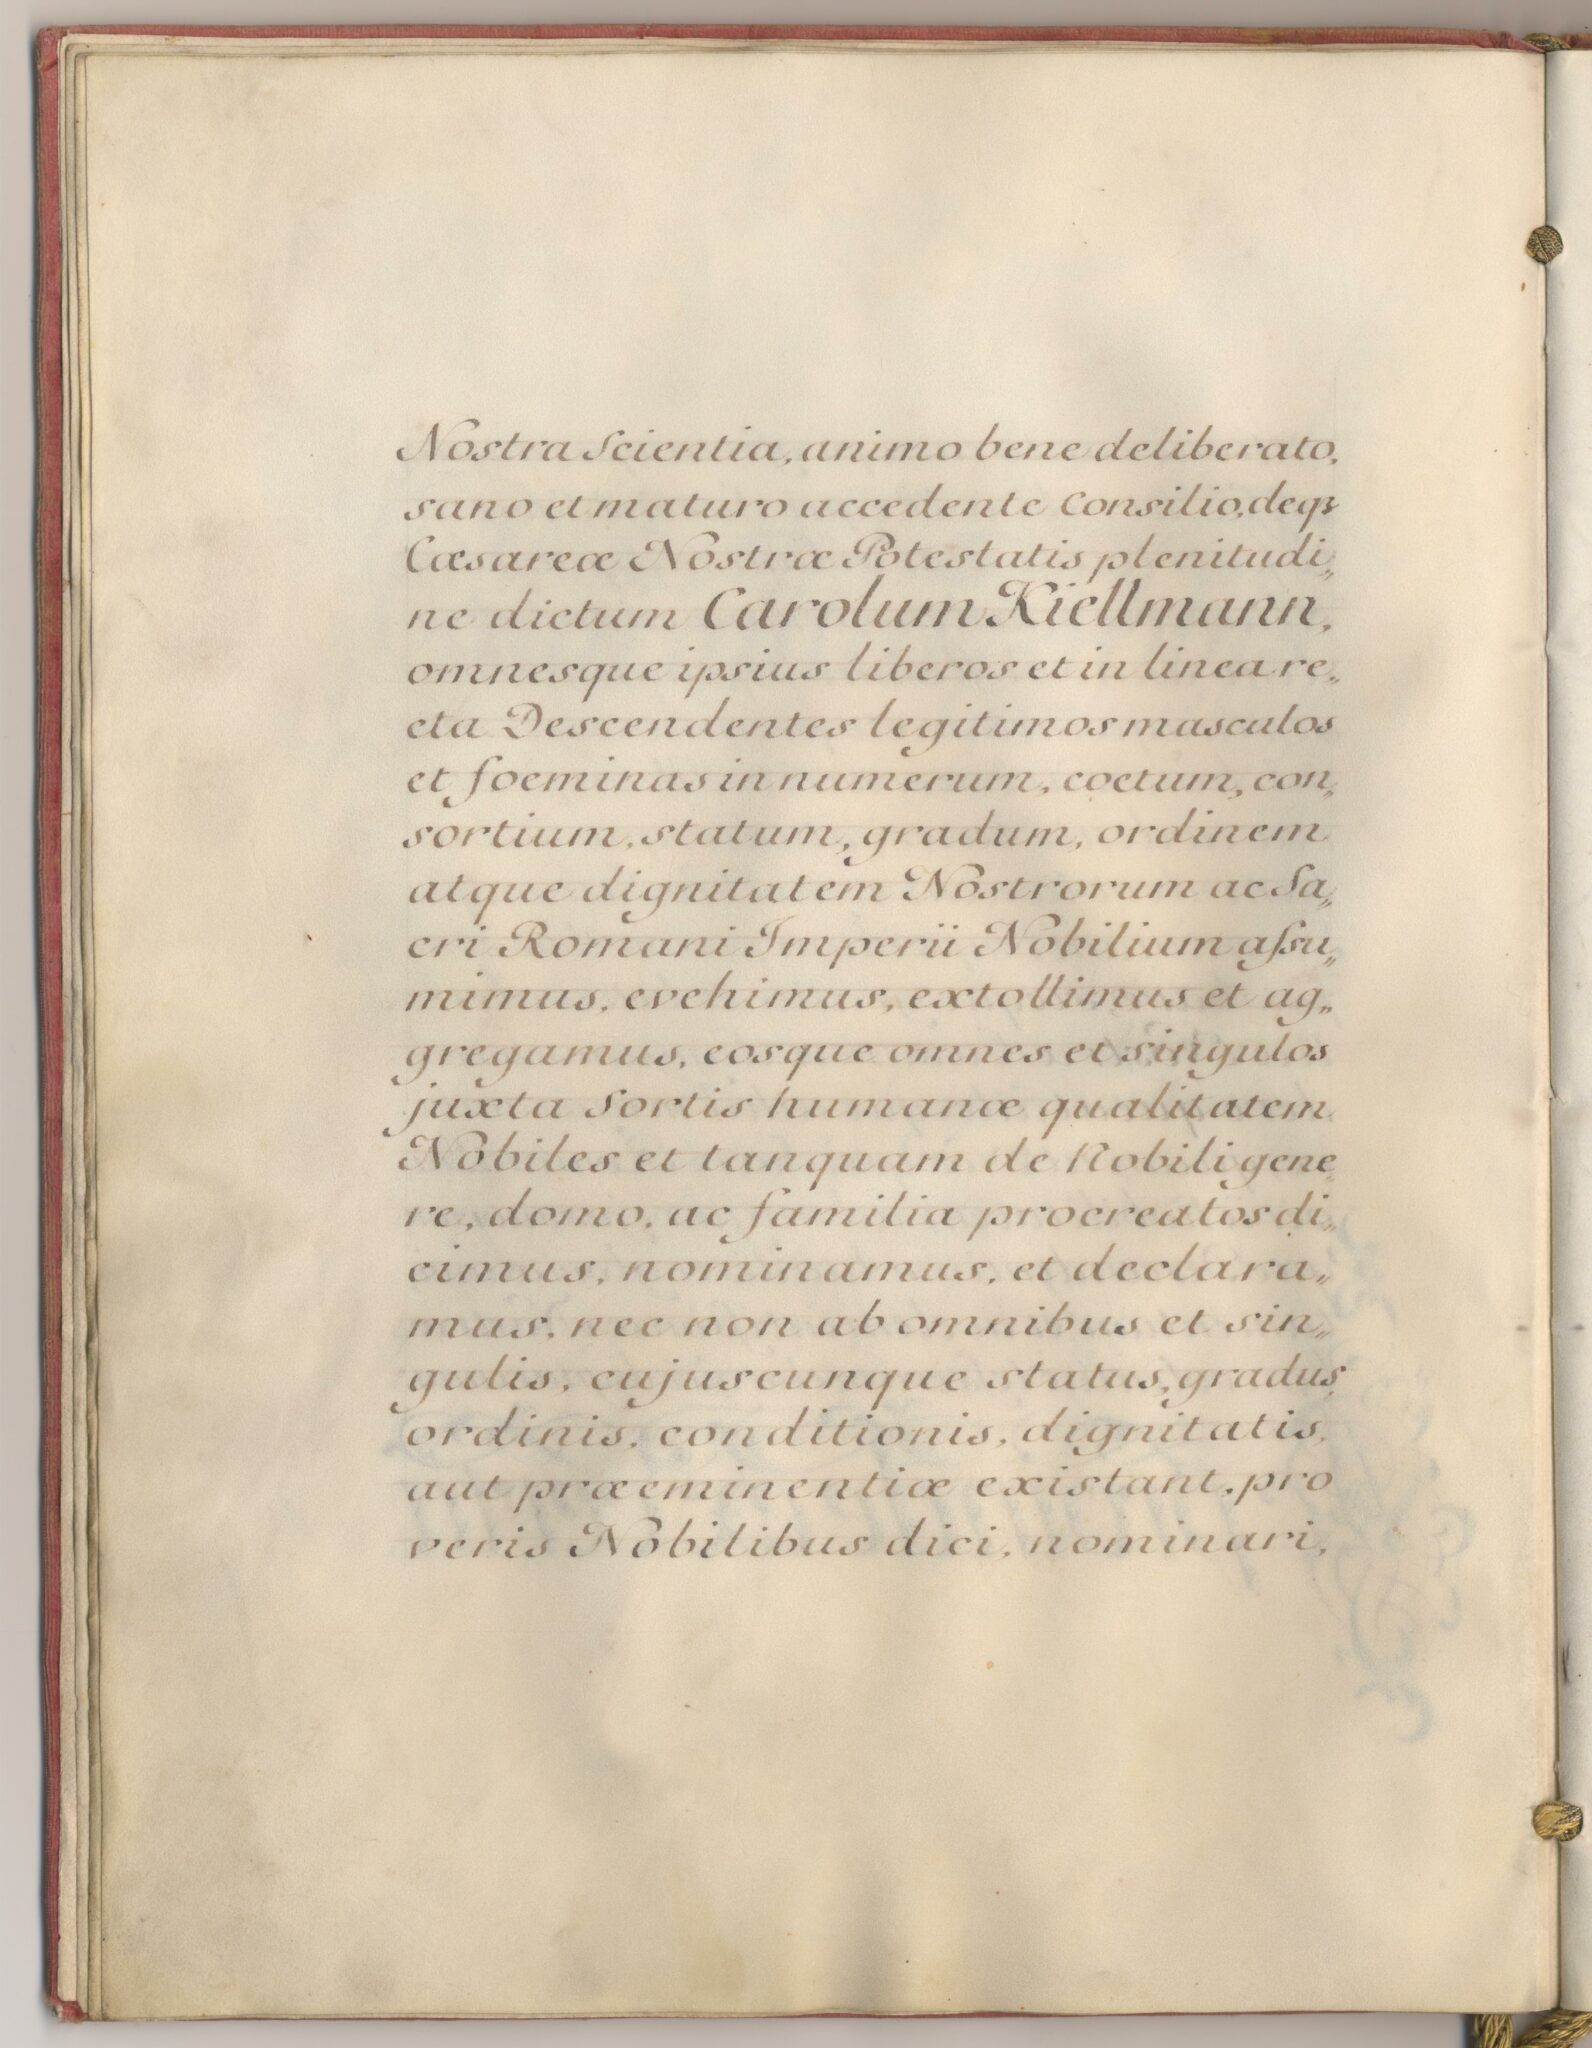 Nostra Scientia, animo bene deliberato,
sano et maturo accedente Consilio, deqꝫ
Cæsareæ Nostræ Potestatis plenitudi„
ne dictum Carolum Kiellmann,
omnesque ipsius liberos et in linea re„
cta Descendentes legitimos masculos
et foeminas in numerum, coetum, con„
sortium, statum, gradum, ordinem
atque dignitatem Nostrorum ac Sa„
cri Romani Imperii Nobilium aſsu„
mimus, evehimus, extollimus et ag„
gregamus, eosque omnes et singulos
juxta Sortis humanæ qualitatem
Nobiles et tanquam de Nobili gene
re, domo, ac familia procreatos di„
cimus, nominamus, et declara„
mus, nec non ab omnibus et sin„
gulis, cujuscunque status, gradus,
ordinis, conditionis, dignitatis,
aut præeminentiæ existant, pro
veris Nobilibus dici, nominari,